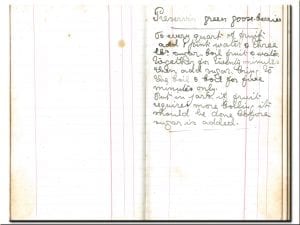 Preserving green gooseberries
To every quart of fruit
add 1 pint water & three
lbs sugar boil fruit & water
together for twenty minutes
then add sugar bring to
the boil & boil for five
minutes only.
Put in jars if fruit
requires more boiling it
should be done before
sugar is added.